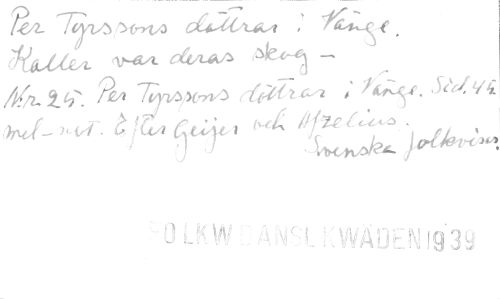 Per Tyrssons döttrar i Vänge.
Kaller var deras skog –
Nr. 25. Per Tyrssons döttrar i Vänge. Sid. 45
mel-not. Efter Geijer och Afzelius.
Svenska folkvisor.
FOLKW DANSLKWÄDEN 1939